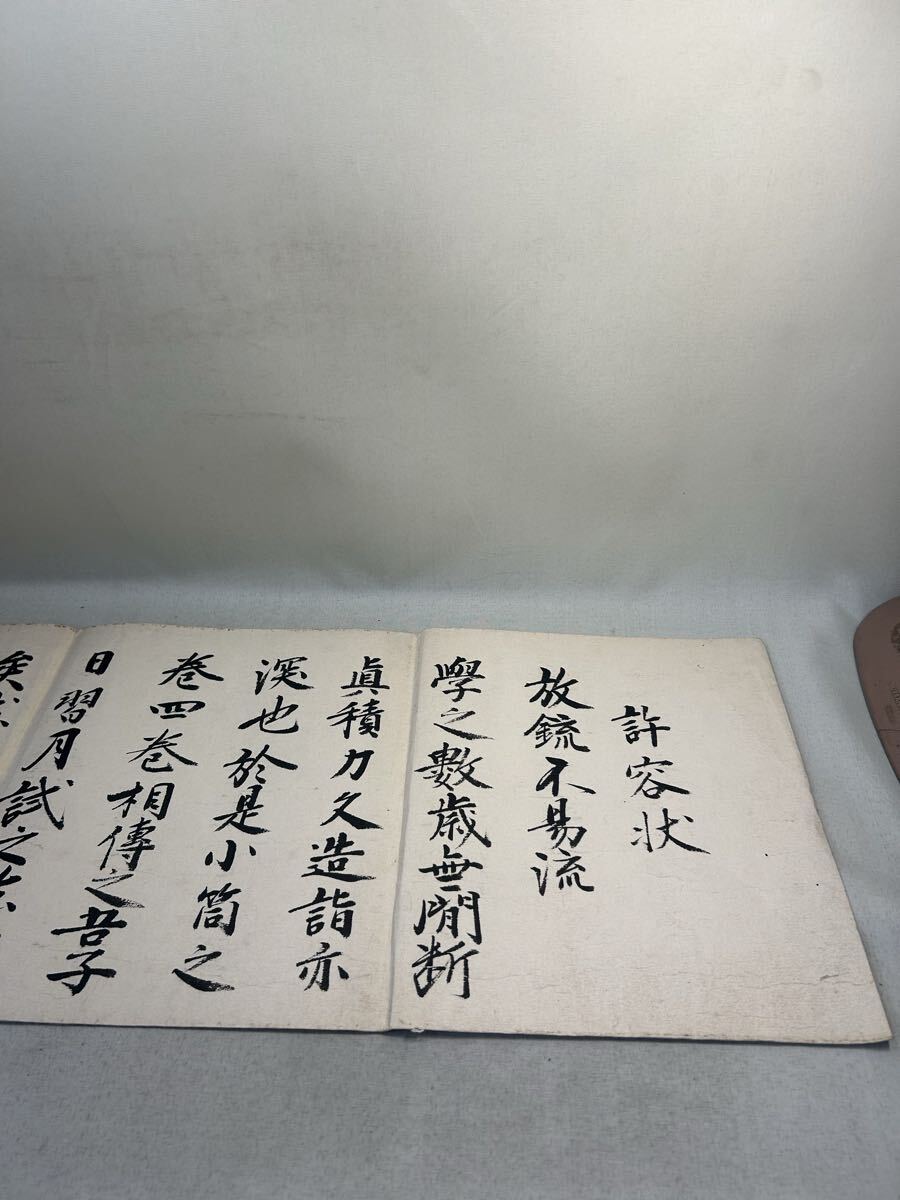 許容状
放銃不易流
學之數歳無間断
眞積力久造詣亦
深也於是小筒之
巻四巻相傳之吾子
日習月試之
矣